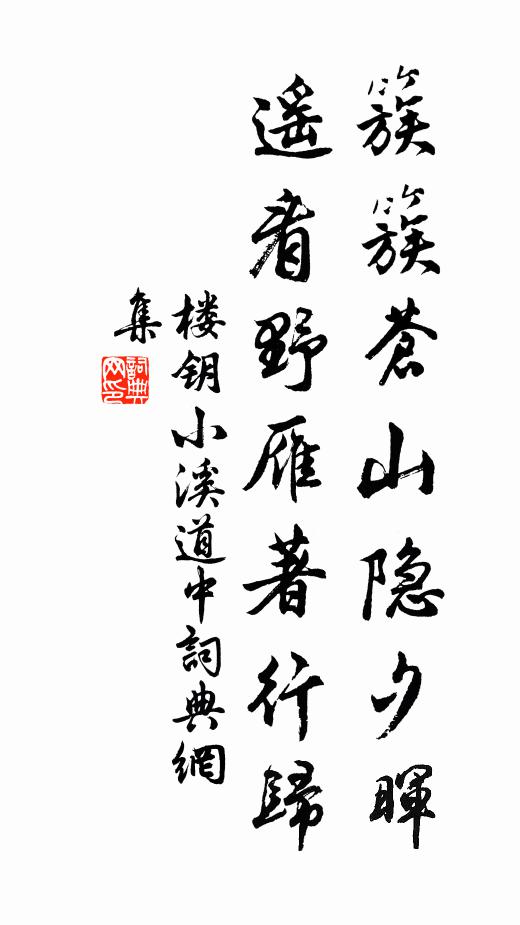 簇簇蒼山隐夕暉
遥看野雁著行歸
楼钥小溪道中詞典網
集
詞典网印